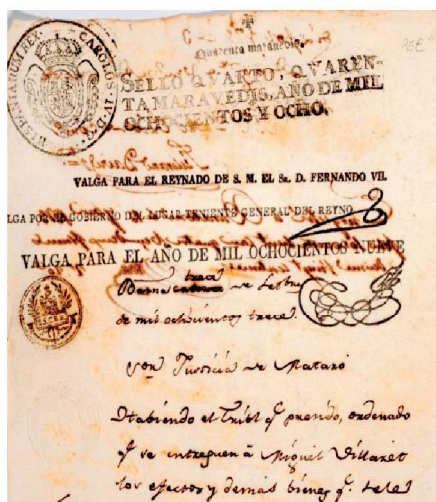 Quarenta maravedis.
HISPANIARUM REX. CAROLUS IV D. G.
SELLO QVARTO, QVAREN-
TA MARAVEDIS, AÑO DE MIL
OCHOCIENTOS Y OCHO.
95€
VALGA PARA EL REYNADO DE S. M. EL SR. D. FERNANDO VII.
LGA POR EL GOBIERNO DEL LUGAR TENIENTE GENERAL DEL REYNO.
VALGA PARA EL AÑO DE MIL OCHOCIENTOS NUEVE
trece
de
de mil ochocientos trece.
Justicia de Mataró
Habiendo el Tribl. q. presido, ordenado
q. se entreguen á Miquel Villaret
los efectos y demás bienes q. se le